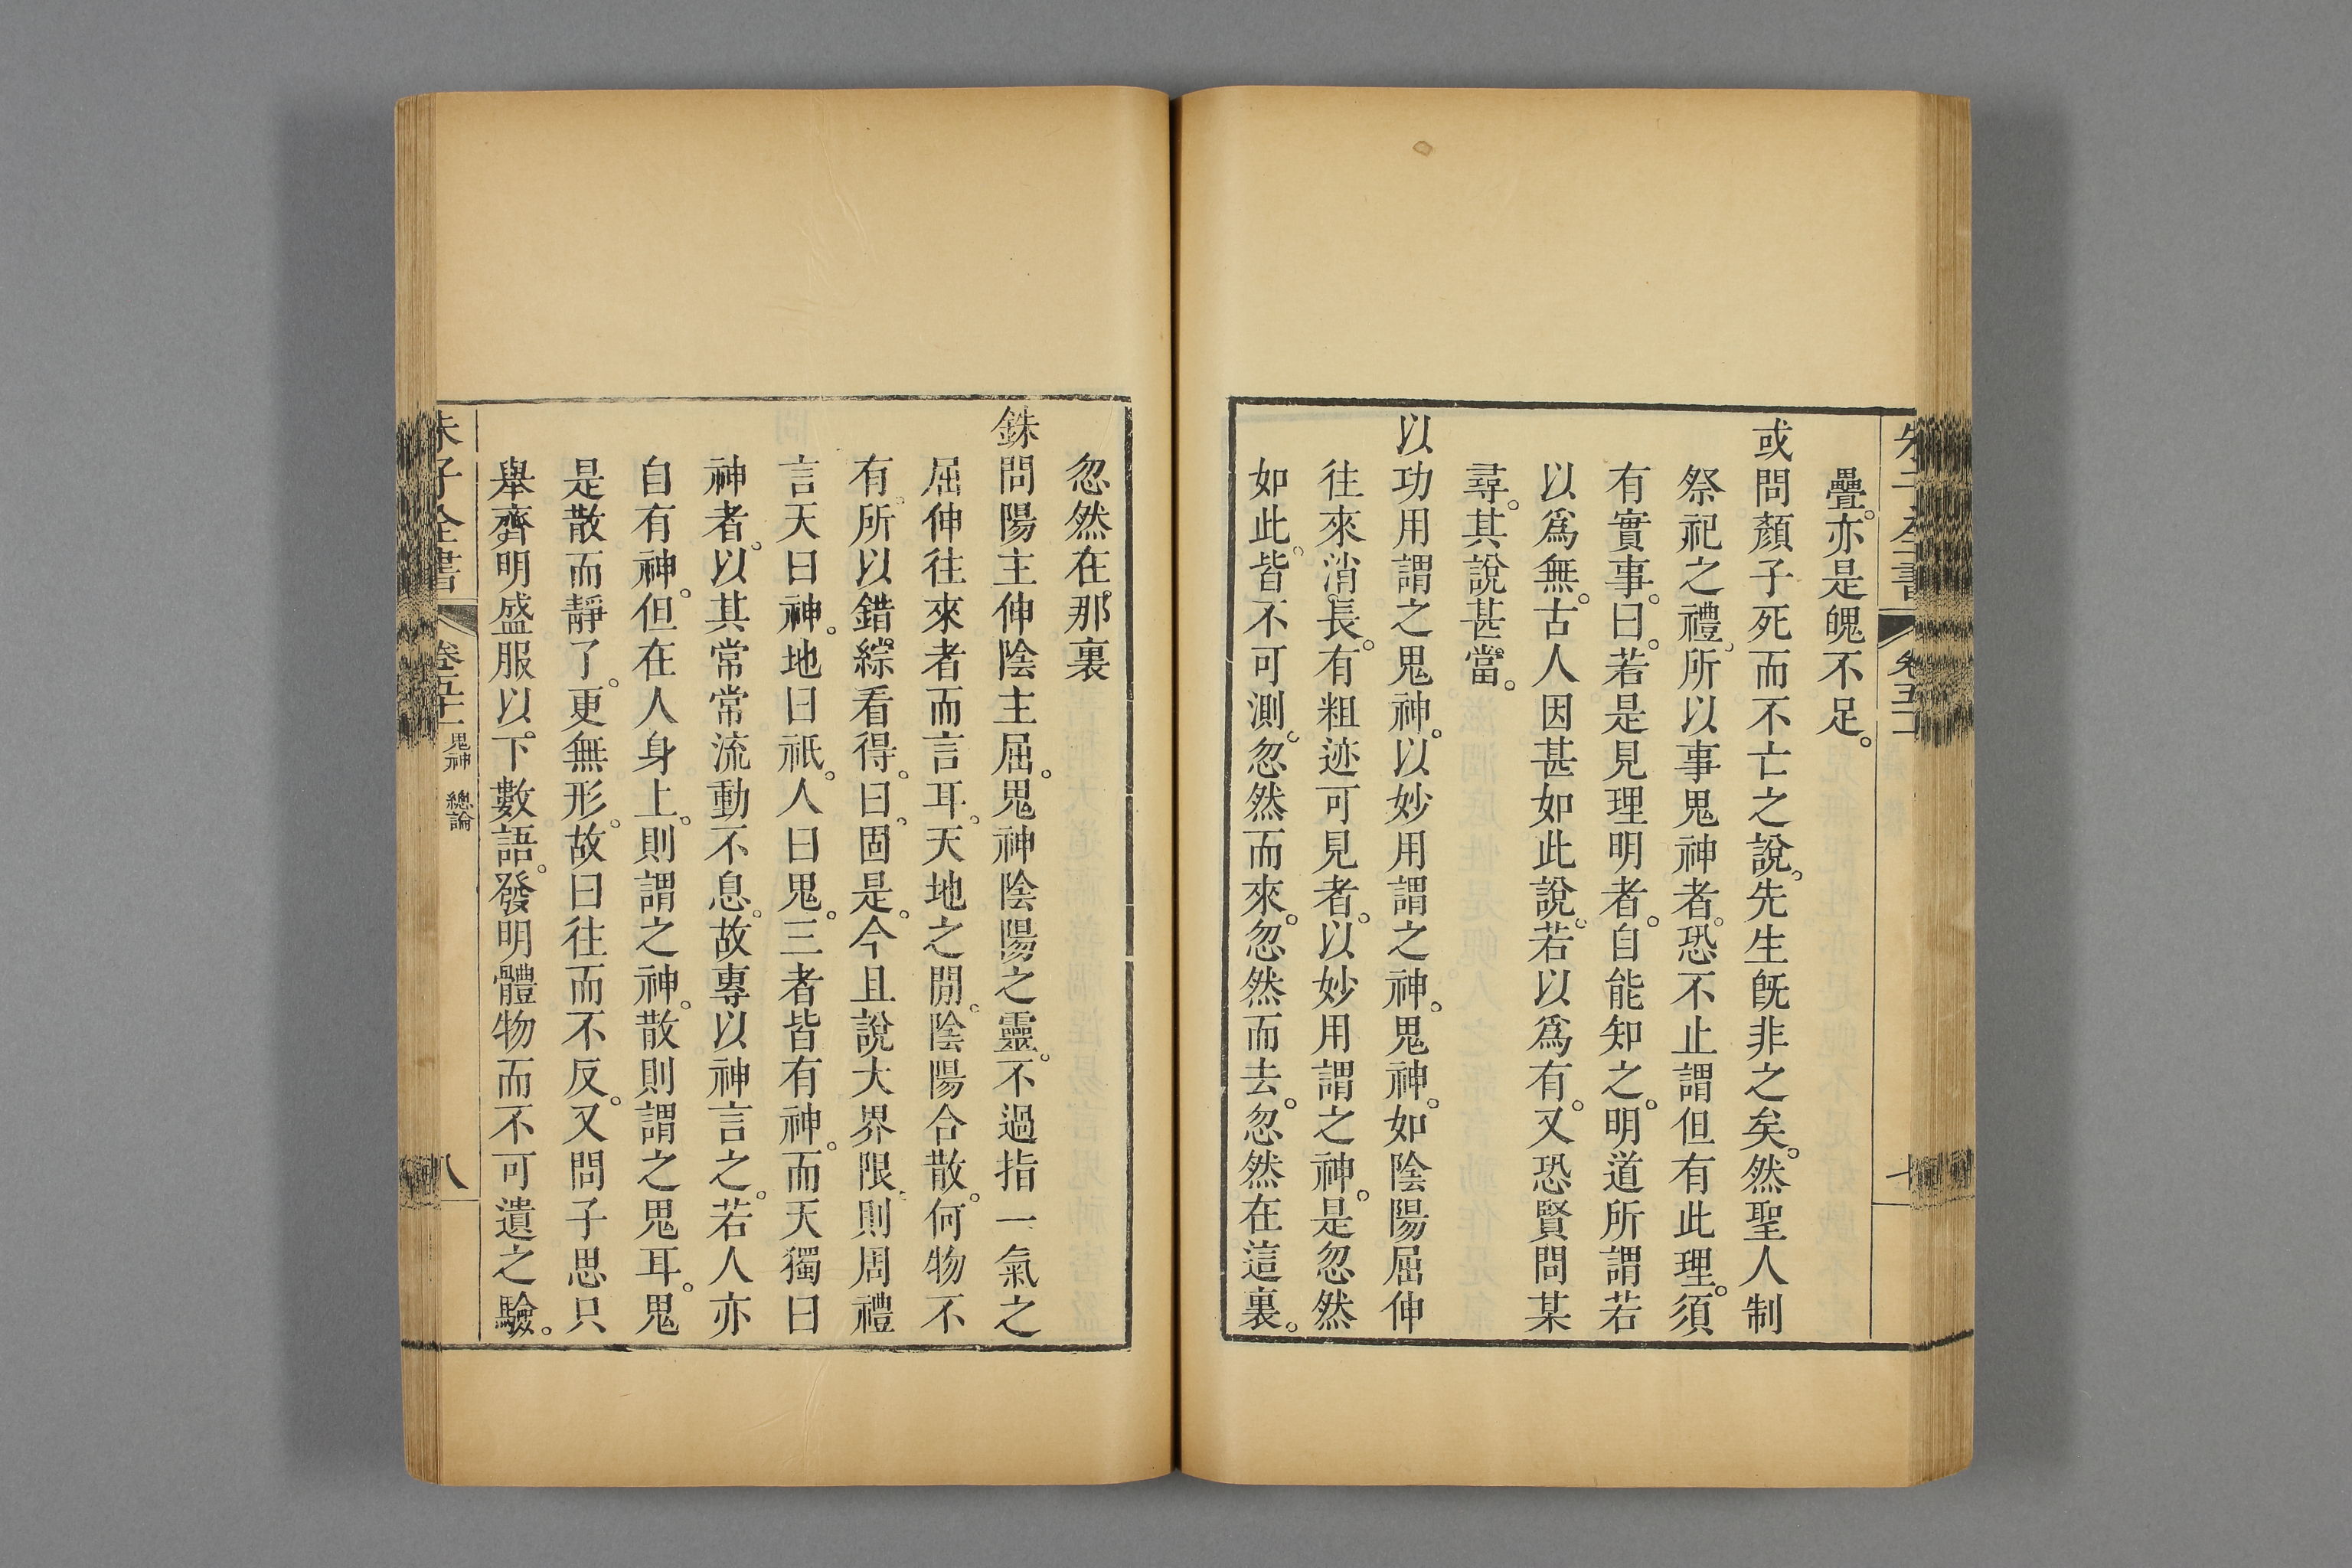 疊。亦是魄不足。
或問顏子死而不亡之說。先生旣非之矣。然聖人制
祭祀之禮。所以事鬼神者。恐不止謂但有此理。須
有實事。曰。若是見理明者。自能知之。明道所謂若
以爲無。古人因甚如此說。若以爲有。又恐賢問某
尋。其說甚當。
以功用謂之鬼神。以妙用謂之神。鬼神。如陰陽屈伸
往來消長。有粗迹可見者。以妙用謂之神。是忽然
如此。皆不可測。忽然而來。忽然而去。忽然在這裏。
忽然在那裏
銖問陽主伸陰主屈。鬼神陰陽之靈。不過指一氣之
屈伸往來者而言耳。天地之閒。陰陽合散。何物不
有。所以錯綜看得。曰。固是。今且說大界限。則周禮
言天曰神。地曰祇。人曰鬼。三者皆有神。而天獨曰
神者。以其常常流動不息。故專以神言之。若人亦
自有神。但在人身上。則謂之神。散則謂之鬼耳。鬼
是散而靜了。更無形。故曰往而不反。又問子思只
舉齊明盛服以下數語。發明體物而不可遺之驗。
朱子全書 卷五十一 鬼神 總論 八